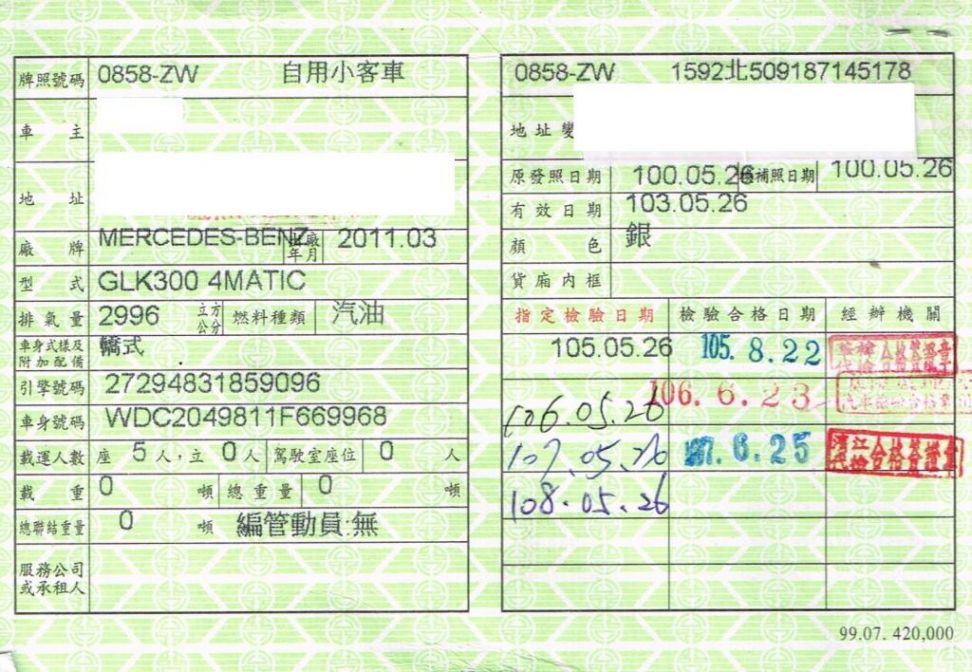 牌照號碼 0858-ZW 自用小客車
車主
地址
廠牌 MERCEDES-BENZ 出廠年月 2011.03
型式 GLK300 4MATIC
排氣量 2996 立方公分 燃料種類 汽油
車身式樣及附加配備 轎式
引擎號碼 27294831859096
車身號碼 WDC2049811F669968
載運人數 座 5 人,立 0 人 駕駛室座位 0 人
載重 0 噸 總重量 0 噸
總聯結重量 0 噸 編管動員:無
服務公司
或承租人
0858-ZW 1592北509187145178
地址變
原發照日期 100.05.26 補照日期 100.05.26
有效日期 103.05.26
顏色 銀
貨廂內框
指定檢驗日期 檢驗合格日期 經辦機關
105.05.26 105. 8.22
106.05.26 106. 6. 23
107.05.26 107.6.25
108.05.26
99.07. 420,000